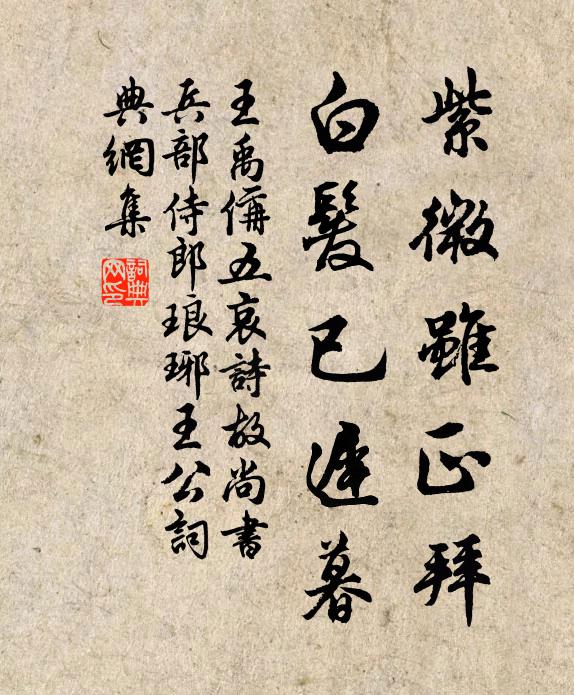 紫微雖正拜
白髮已遲暮
王禹偁五哀詩故尚書
兵部侍郎琅琊王公詞
典網集
詞典網印